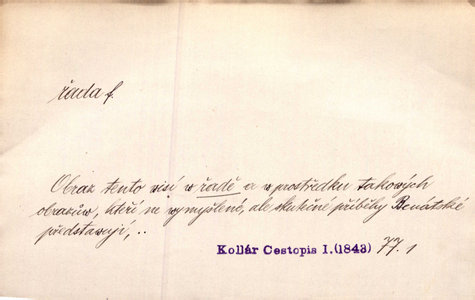 řada f.
Obraz tento visí w řadě a w prostředku takových
obrazůw, kteří ne wymyšlené, ale skutečné příběhy Benátské
představují, ..
Kollár Cestopis I.(1843) 77.1